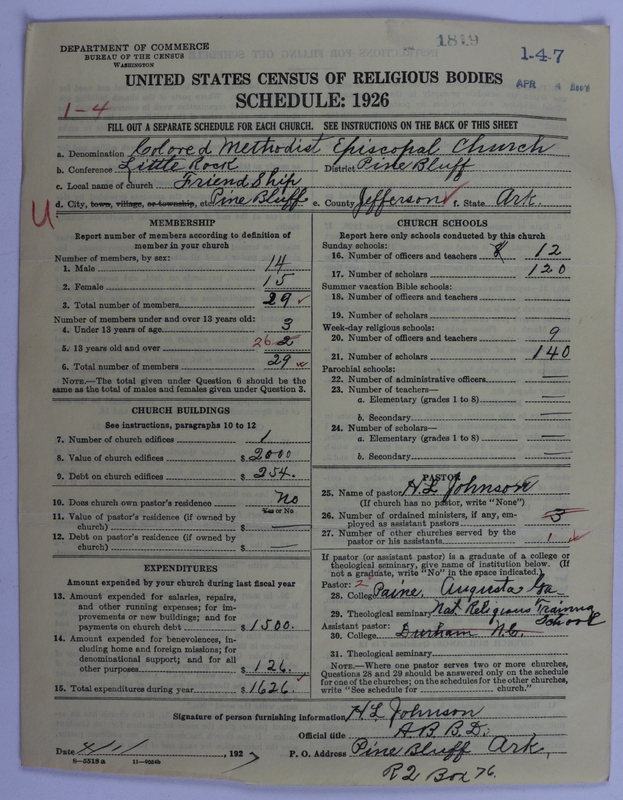 DEPARTMENT OF COMMERCE
BUREAU OF THE CENSUS
WASHINGTON
1819
1-4-7
APR
UNITED STATES CENSUS OF RELIGIOUS BODIES
SCHEDULE: 1926
1-4
FILL OUT A SEPARATE SCHEDULE FOR EACH CHURCH. SEE INSTRUCTIONS ON THE BACK OF THIS SHEET
a. Denomination Colored Methodist Episcopal Church
b. Conference Little Rock District Pine Bluff
c. Local name of church Friend Ship
d. City, town, village, or township, etc. Pine Bluff e. County Jefferson f. State Ark.
U
MEMBERSHIP
Report number of members according to definition of
member in your church
Number of members, by sex:
1. Male 14
2. Female 15
3. Total number of members 29
Number of members under and over 13 years old:
4. Under 13 years of age 3
5. 13 years old and over 26 2
6. Total number of members 29
NOTE.—The total given under Question 6 should be
same as the total of males and females given under Question 3.
CHURCH BUILDINGS
See instructions, paragraphs 10 to 12
7. Number of church edifices 1
8. Value of church edifices $ 2000
9. Debt on church edifices $ 254.
10. Does church own pastor's residence No
Yes or No
11. Value of pastor's residence (if owned by
church) $ —
12. Debt on pastor's residence (if owned by
church) $ —
EXPENDITURES
Amount expended by your church during last fiscal year
13. Amount expended for salaries, repairs,
and other running expenses; for im-
provements or new buildings; and for
payments on church debt $ 1500.
14. Amount expended for benevolences, in-
cluding home and foreign missions; for
denominational support; and for all
other purposes $ 126.
15. Total expenditures during year $ 1626.
CHURCH SCHOOLS
Report here only schools conducted by this church
Sunday schools:
16. Number of officers and teachers 8 12
17. Number of scholars 120
Summer vacation Bible schools:
18. Number of officers and teachers
19. Number of scholars
Week-day religious schools:
20. Number of officers and teachers 9
21. Number of scholars 140
Parochial schools:
22. Number of administrative officers —
23. Number of teachers—
a. Elementary (grades 1 to 8) —
b. Secondary —
24. Number of scholars—
a. Elementary (grades 1 to 8) —
b. Secondary —
PASTOR
25. Name of pastor H L Johnson
(If church has no pastor, write "None")
26. Number of ordained ministers, if any, em-
ployed as assistant pastors 3
27. Number of other churches served by the
pastor or his assistants 1
If pastor (or assistant pastor) is a graduate of a college or
theological seminary, give name of institution below. (If
not a graduate, write "No" in the space indicated.)
Pastor: 2
28. College Paine, Augusta Ga
29. Theological seminary Nat Religious Training School
Assistant pastor:
30. College Durham N.C.
31. Theological seminary
NOTE.—Where one pastor serves two or more churches,
Questions 28 and 29 should be answered only on the schedule
for one of the churches; on the schedules for the other churches,
write "See schedule for church."
Signature of person furnishing information H L Johnson
Official title A.B B.D.
Date 4/1/ , 1927 P. O. Address Pine Bluff Ark,
8—5518a 11—9054b R 2 Box 76.